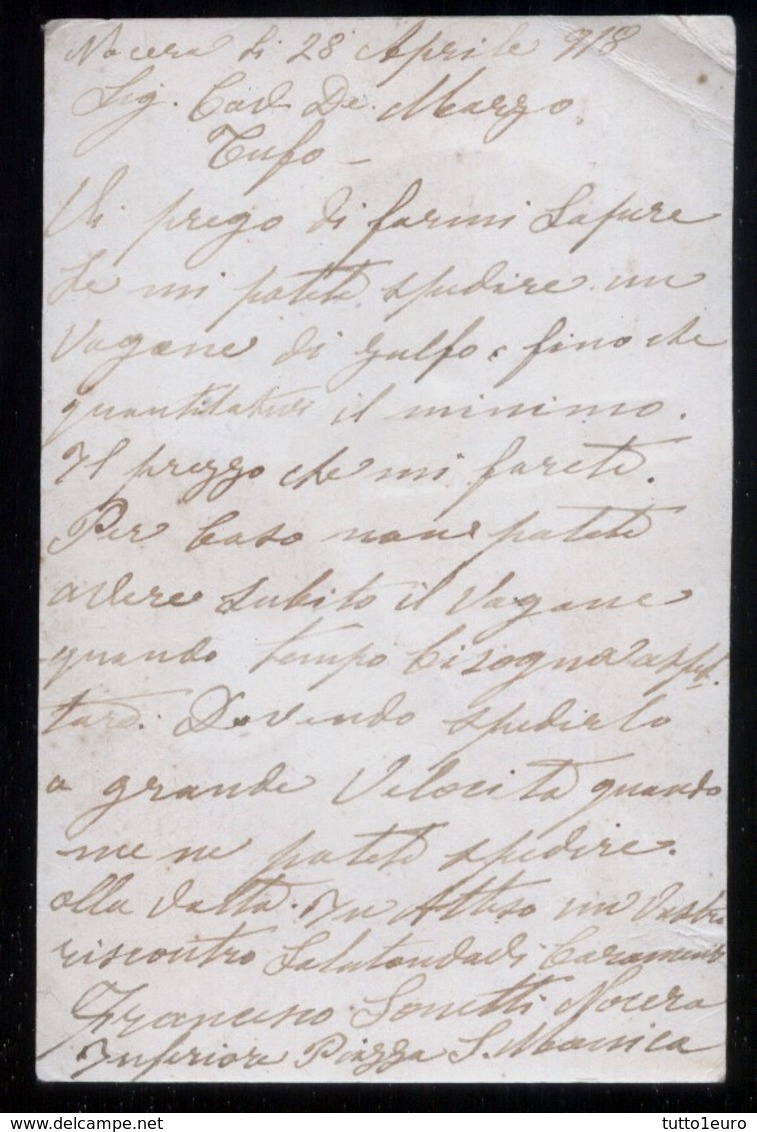 Nocera li 28 Aprile 918
Sig. Cav. De. Marzo.
Tufo -
Vi prego di farmi Sapere
Se mi potete spedire un
Vagone di zulfo, fino che
quantitativi il minimo.
Il prezzo che mi farete.
Per Caso non potete
avere subito il Vagone
quando tempo bisogna aspet
tare. Dovendo spedirlo
a grande Velocità quando
me ne potete spedire.
alla Volta. In Atteso un Vostro
riscontro Salutondadi Caramente
Francesco Nocera
Inferiore Piazza S. Monica
tutto1euro